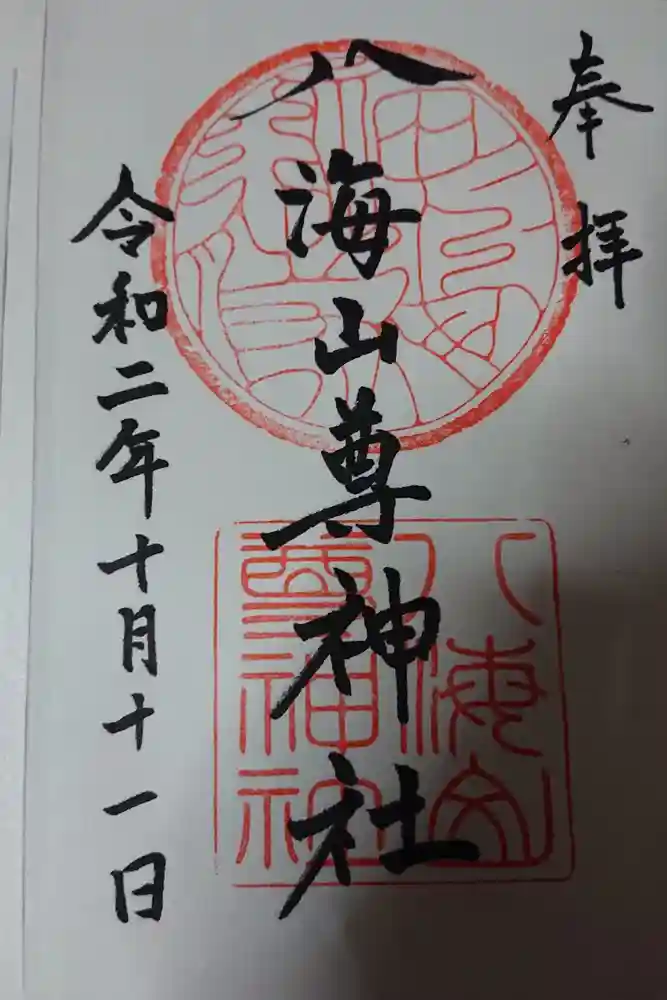 奉拝
八海山尊神社
令和二年十月十一日
八海山
尊神社